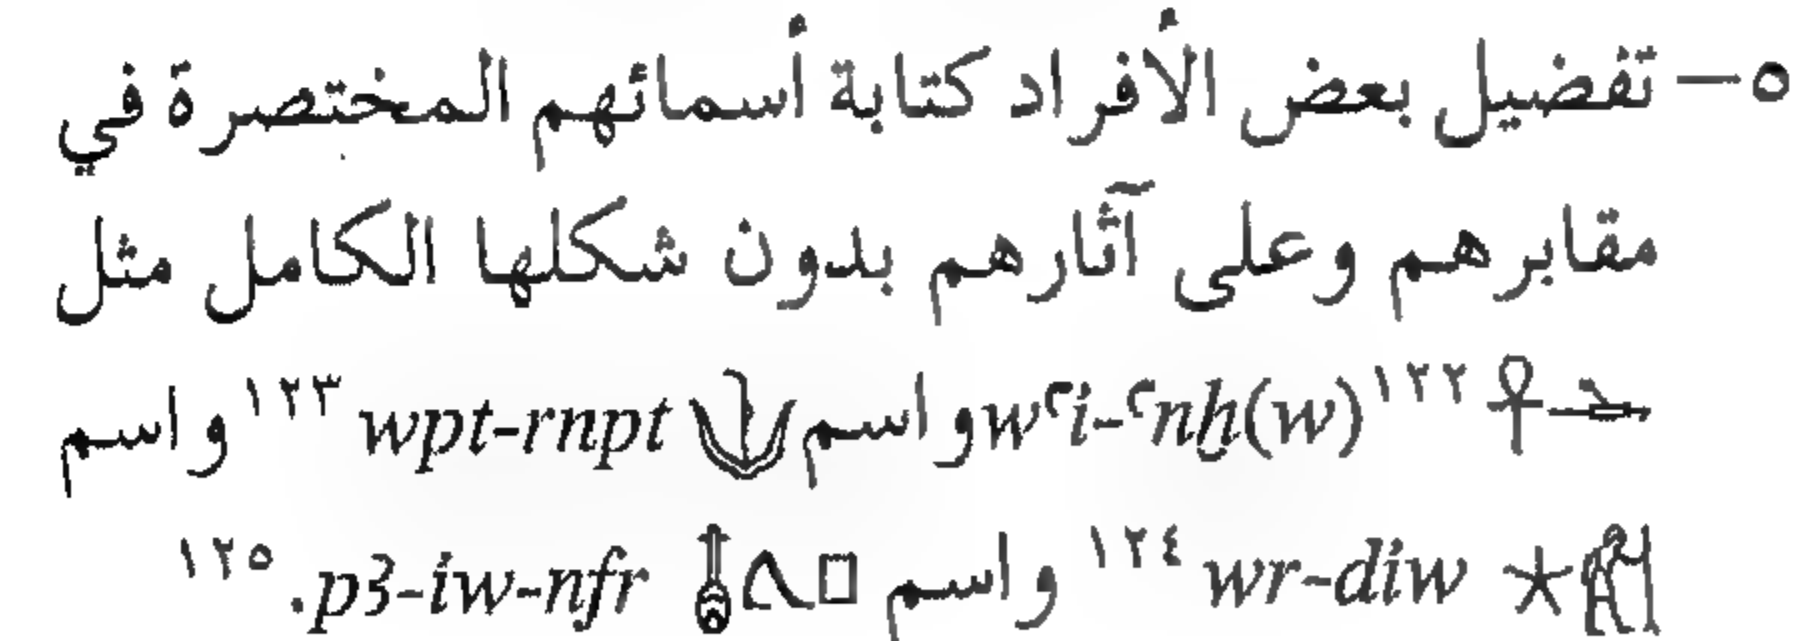 ٥– تفضيل بعض الأفراد كتابة أسمائهم المختصرة في
مقابرهم وعلى آثارهم بدون شكلها الكامل مثل
𓌡𓋹 ١٢٢ wꜥi-ꜥnḫ(w) واسم 𓄋 wpt-rnpt ١٢٣ واسم
𓀙𓇼 wr-diw ١٢٤ واسم 𓊪𓂻𓄤 p3-iw-nfr. ١٢٥